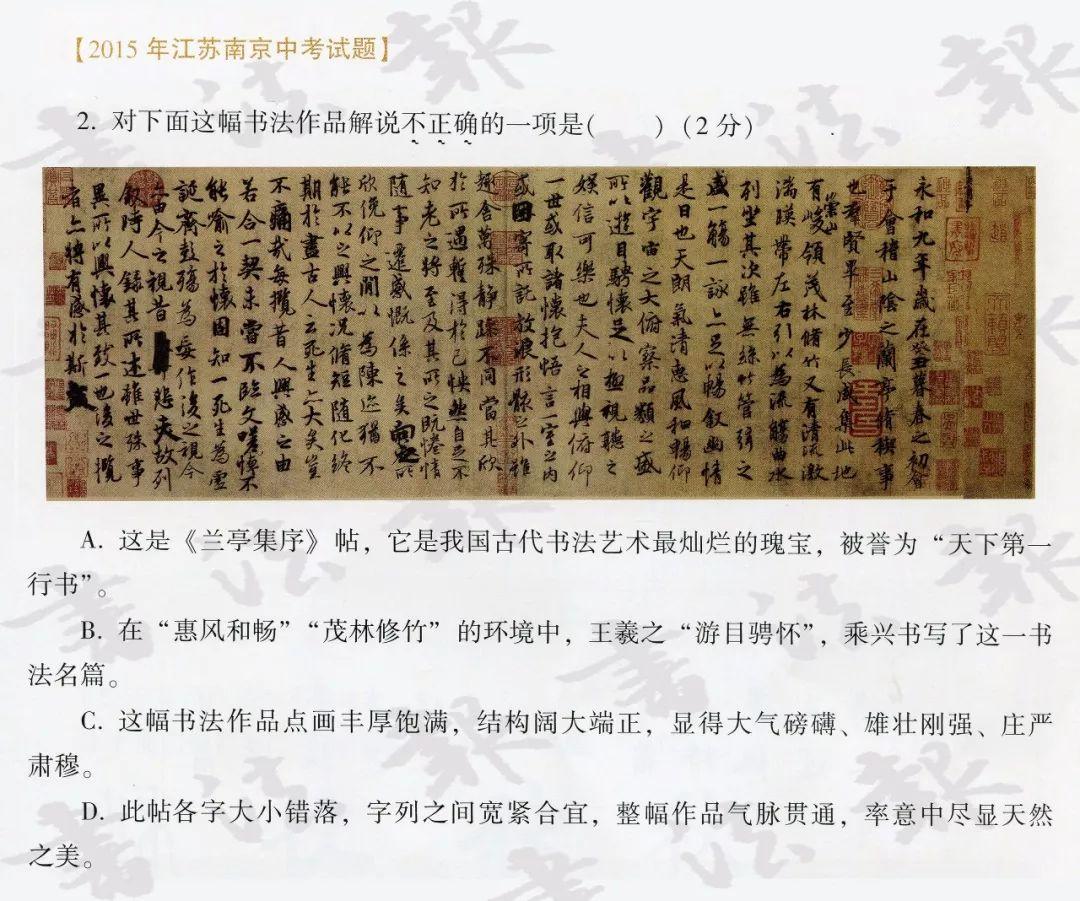 【2015 年江苏南京中考试题】
2. 对下面这幅书法作品解说不正确的一项是(　　)(2 分)
永和九年歲在癸丑暮春之初會
于會稽山陰之蘭亭脩稧事
也羣賢畢至少長咸集此地
有崇山峻領茂林脩竹又有清流激
湍暎帶左右引以為流觴曲水
列坐其次雖無絲竹管弦之
盛一觴一詠亦足以暢敘幽情
是日也天朗氣清惠風和暢仰
觀宇宙之大俯察品類之盛
所以遊目騁懷足以極視聽之
娛信可樂也夫人之相與俯仰
一世或取諸懷抱悟言一室之內
或因寄所託放浪形骸之外雖
趣舍萬殊靜躁不同當其欣
於所遇暫得於己怏然自足不
知老之將至及其所之既惓情
隨事遷感慨係之矣向之所
欣俛仰之間以為陳迹猶不
能不以之興懷況脩短隨化終
期於盡古人云死生亦大矣豈
不痛哉每攬昔人興感之由
若合一契未嘗不臨文嗟悼不
能喻之於懷固知一死生為虛
誕齊彭殤為妄作後之視今
亦由今之視昔悲夫故列
敘時人錄其所述雖世殊事
異所以興懷其致一也後之攬
者亦將有感於斯文
A. 这是《兰亭集序》帖，它是我国古代书法艺术最灿烂的瑰宝，被誉为“天下第一
行书”。
B. 在“惠风和畅”“茂林修竹”的环境中，王羲之“游目骋怀”，乘兴书写了这一书
法名篇。
C. 这幅书法作品点画丰厚饱满，结构阔大端正，显得大气磅礴、雄壮刚强、庄严
肃穆。
D. 此帖各字大小错落，字列之间宽紧合宜，整幅作品气脉贯通，率意中尽显天然
之美。